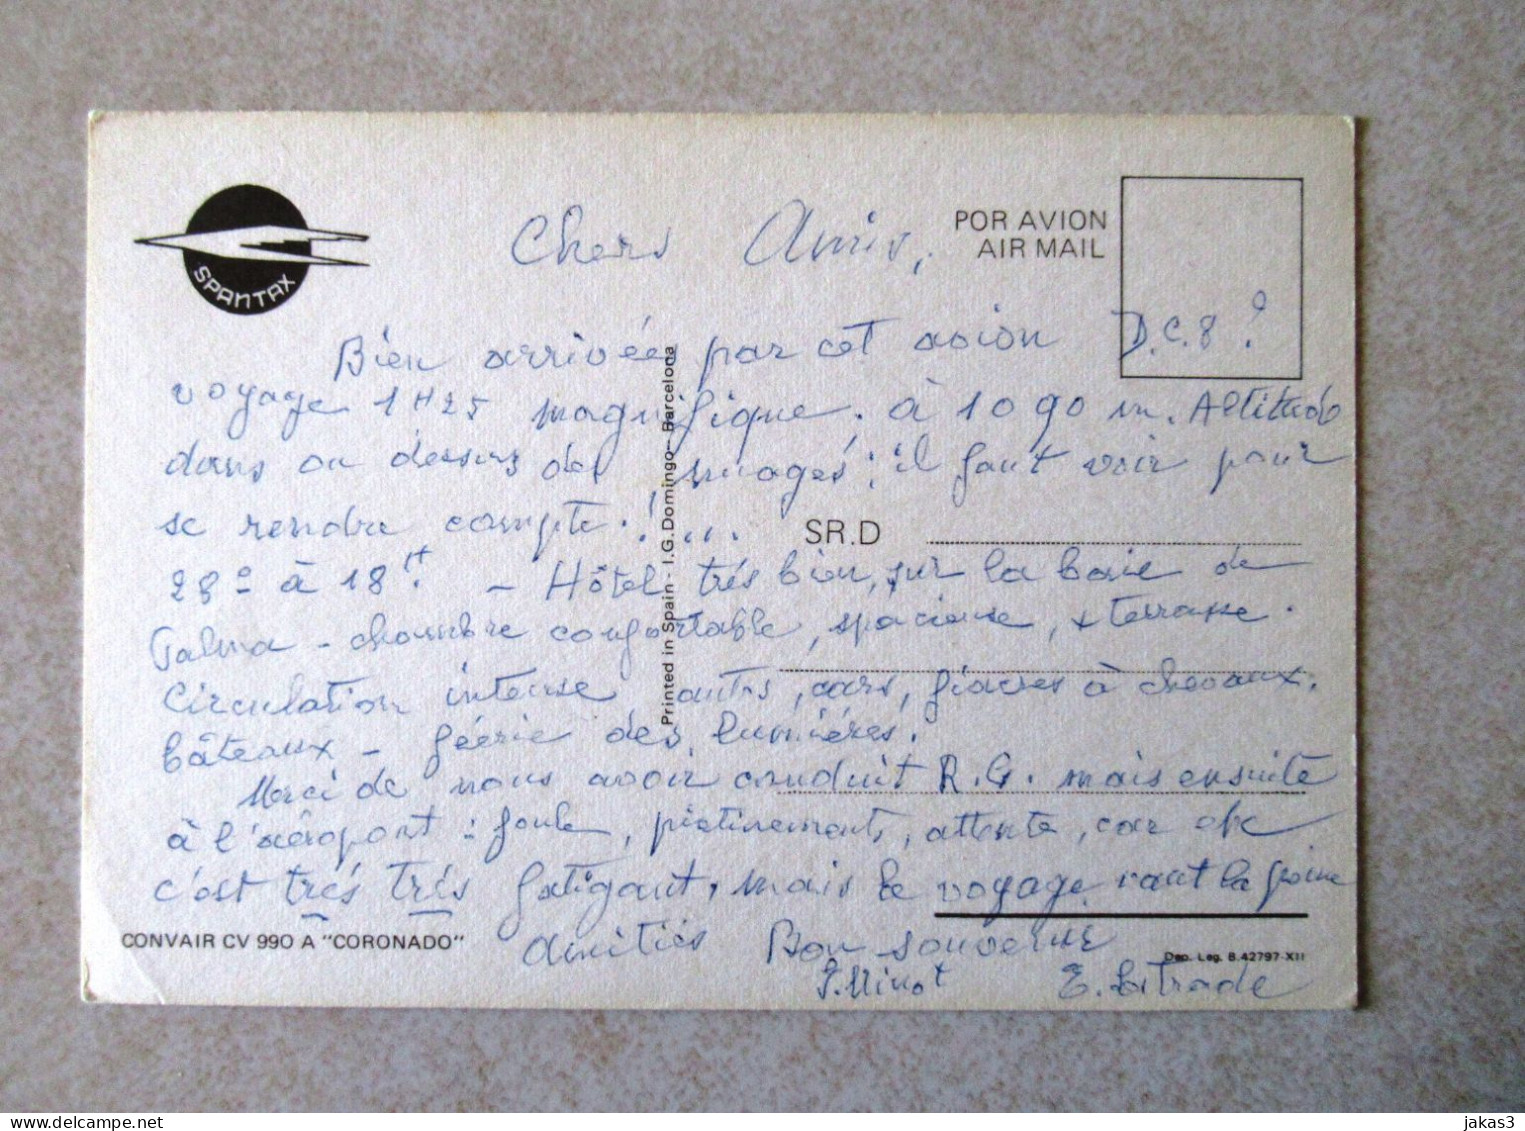 SPANTAX
POR AVION
AIR MAIL
Chers Amis,
Bien arrivées par cet avion D.C.8 ?
voyage 1H25 magnifique. à 1090 m. Altitude
dans ou dessus des nuages ; il faut voir pour
se rendre compte . ! ...
SR.D
28° à 18H. - Hôtel très bien, sur la baie de
Palma - chambre confortable, spacieuse, + terrasse.
Circulation intense autos, cars, fiacres à chevaux.
bâteaux - féérie des lumières.
Merci de nous avoir conduit R.G. mais ensuite
à l'aéroport : foule, piétinements, attente, car etc
c'est très très fatigant, mais le voyage vaut la peine
CONVAIR CV 990 A "CORONADO"
amitiés Bon souvenir
Dep. Leg. B.42797-XII
E. Latrade
Printed in Spain - I.G. Domingo - Barcelona
jakas3